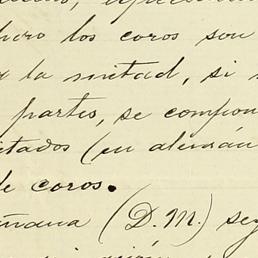 pero los coros son
la mitad, si
partes, se compon
itados (en alemán
de coros.
ñana (D. M.) seg